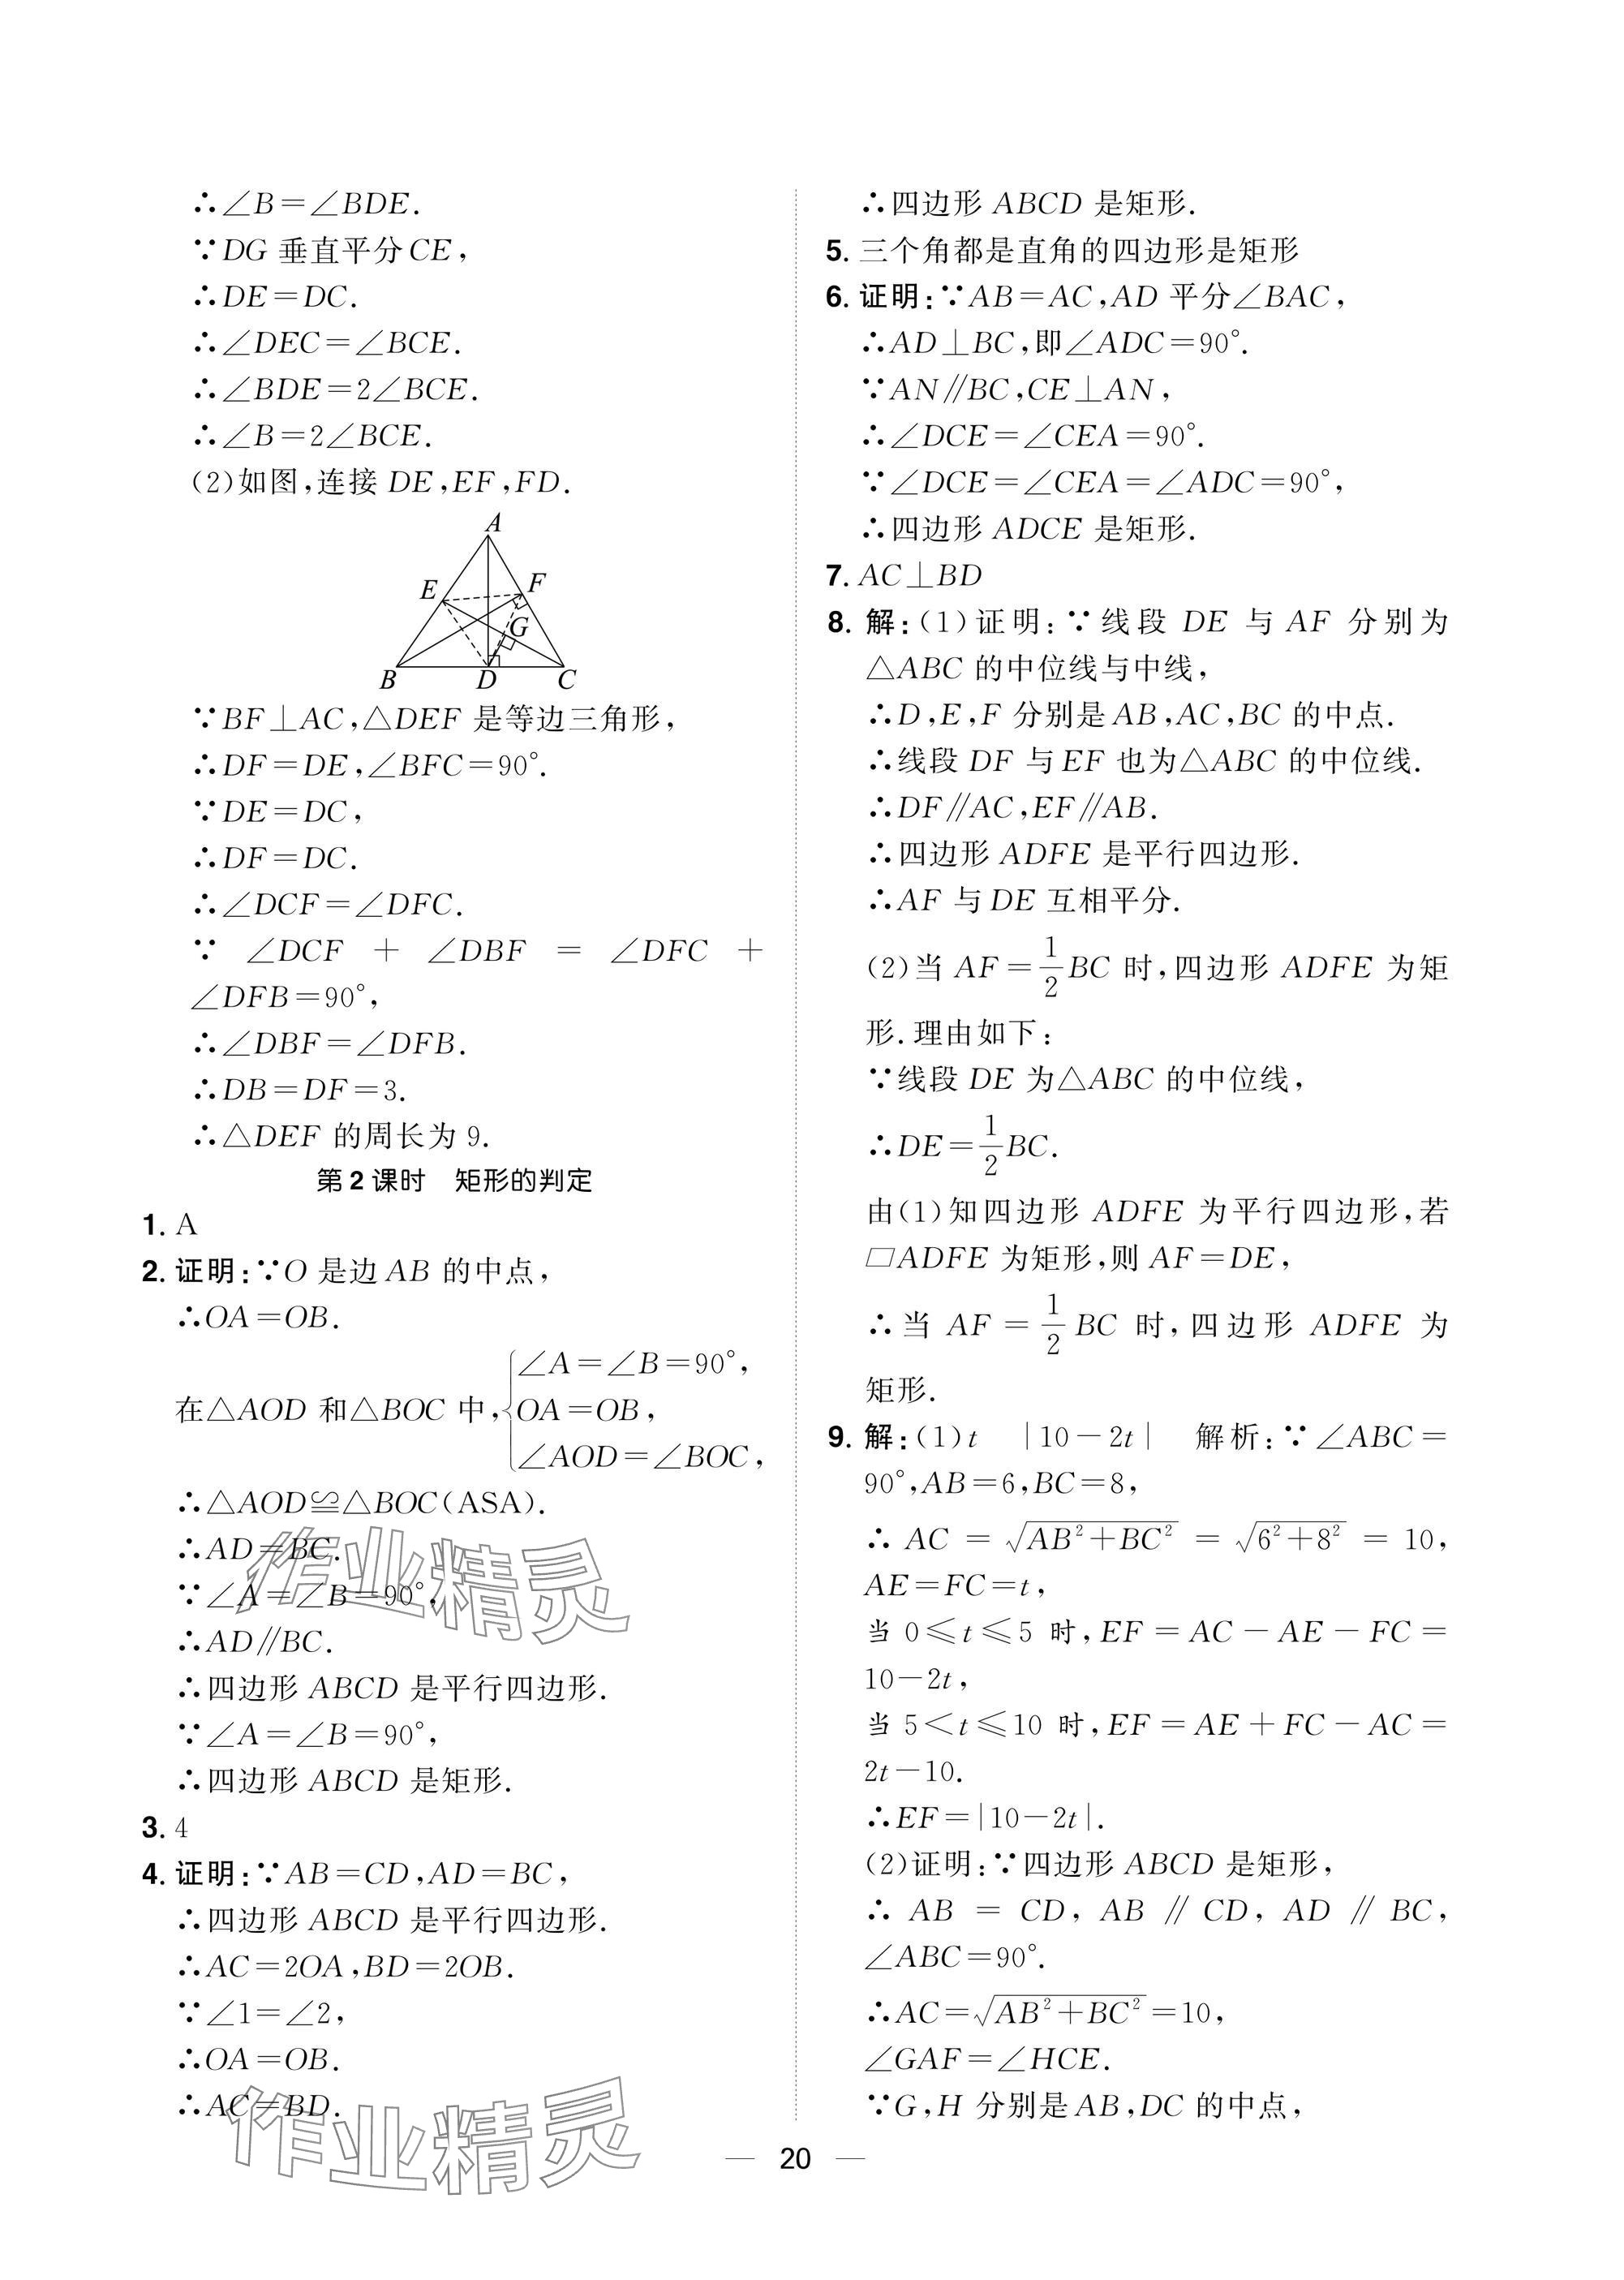 ∴∠B=∠BDE.
∵DG 垂直平分CE,
∴DE=DC.
∴∠DEC=∠BCE.
∴∠BDE=2∠BCE.
∴∠B=2∠BCE.
(2)如图,连接 DE,EF,FD.
A
E
F
G
B
D
C
∵BF⊥AC,△DEF 是等边三角形,
∴DF=DE,∠BFC=90°.
∵DE=DC,
∴DF=DC.
∴∠DCF=∠DFC.
∵ ∠DCF + ∠DBF = ∠DFC +
∠DFB=90°,
∴∠DBF=∠DFB.
∴DB=DF=3.
∴△DEF 的周长为 9.
第2课时 矩形的判定
1. A
2. 证明:∵O 是边 AB 的中点,
∴OA=OB.
∠A=∠B=90°,
在△AOD 和△BOC 中,{OA=OB,
∠AOD=∠BOC,
∴△AOD≌△BOC(ASA).
∴AD=BC.
∵∠A=∠B=90°,
∴AD∥BC.
∴四边形 ABCD 是平行四边形.
∵∠A=∠B=90°,
∴四边形 ABCD 是矩形.
3. 4
4. 证明:∵AB=CD,AD=BC,
∴四边形 ABCD 是平行四边形.
∴AC=2OA,BD=2OB.
∵∠1=∠2,
∴OA=OB.
∴AC=BD.
∴四边形 ABCD 是矩形.
5. 三个角都是直角的四边形是矩形
6. 证明:∵AB=AC,AD 平分∠BAC,
∴AD⊥BC,即∠ADC=90°.
∵AN∥BC,CE⊥AN,
∴∠DCE=∠CEA=90°.
∵∠DCE=∠CEA=∠ADC=90°,
∴四边形 ADCE 是矩形.
7. AC⊥BD
8. 解:(1)证明:∵线段 DE 与 AF 分别为
△ABC 的中位线与中线,
∴D,E,F 分别是AB,AC,BC 的中点.
∴线段 DF 与EF 也为△ABC 的中位线.
∴DF∥AC,EF∥AB.
∴四边形 ADFE 是平行四边形.
∴AF 与DE 互相平分.
(2)当 AF=1/2BC 时,四边形 ADFE 为矩
形.理由如下:
∵线段 DE 为△ABC 的中位线,
∴DE=1/2BC.
由(1)知四边形 ADFE 为平行四边形,若
▱ADFE 为矩形,则 AF=DE,
∴当 AF=1/2BC 时,四边形 ADFE 为
矩形.
9. 解:(1)t |10-2t| 解析:∵∠ABC=
90°,AB=6,BC=8,
∴ AC = √(AB²+BC²) = √(6²+8²) = 10,
AE=FC=t,
当 0≤t≤5 时,EF=AC-AE-FC=
10-2t,
当 5<t≤10 时,EF=AE+FC-AC=
2t-10.
∴EF=|10-2t|.
(2)证明:∵四边形 ABCD 是矩形,
∴ AB = CD, AB ∥ CD, AD ∥ BC,
∠ABC=90°.
∴AC=√(AB²+BC²)=10,
∠GAF=∠HCE.
∵G,H 分别是AB,DC 的中点,
作业精灵
作业精灵
— 20 —